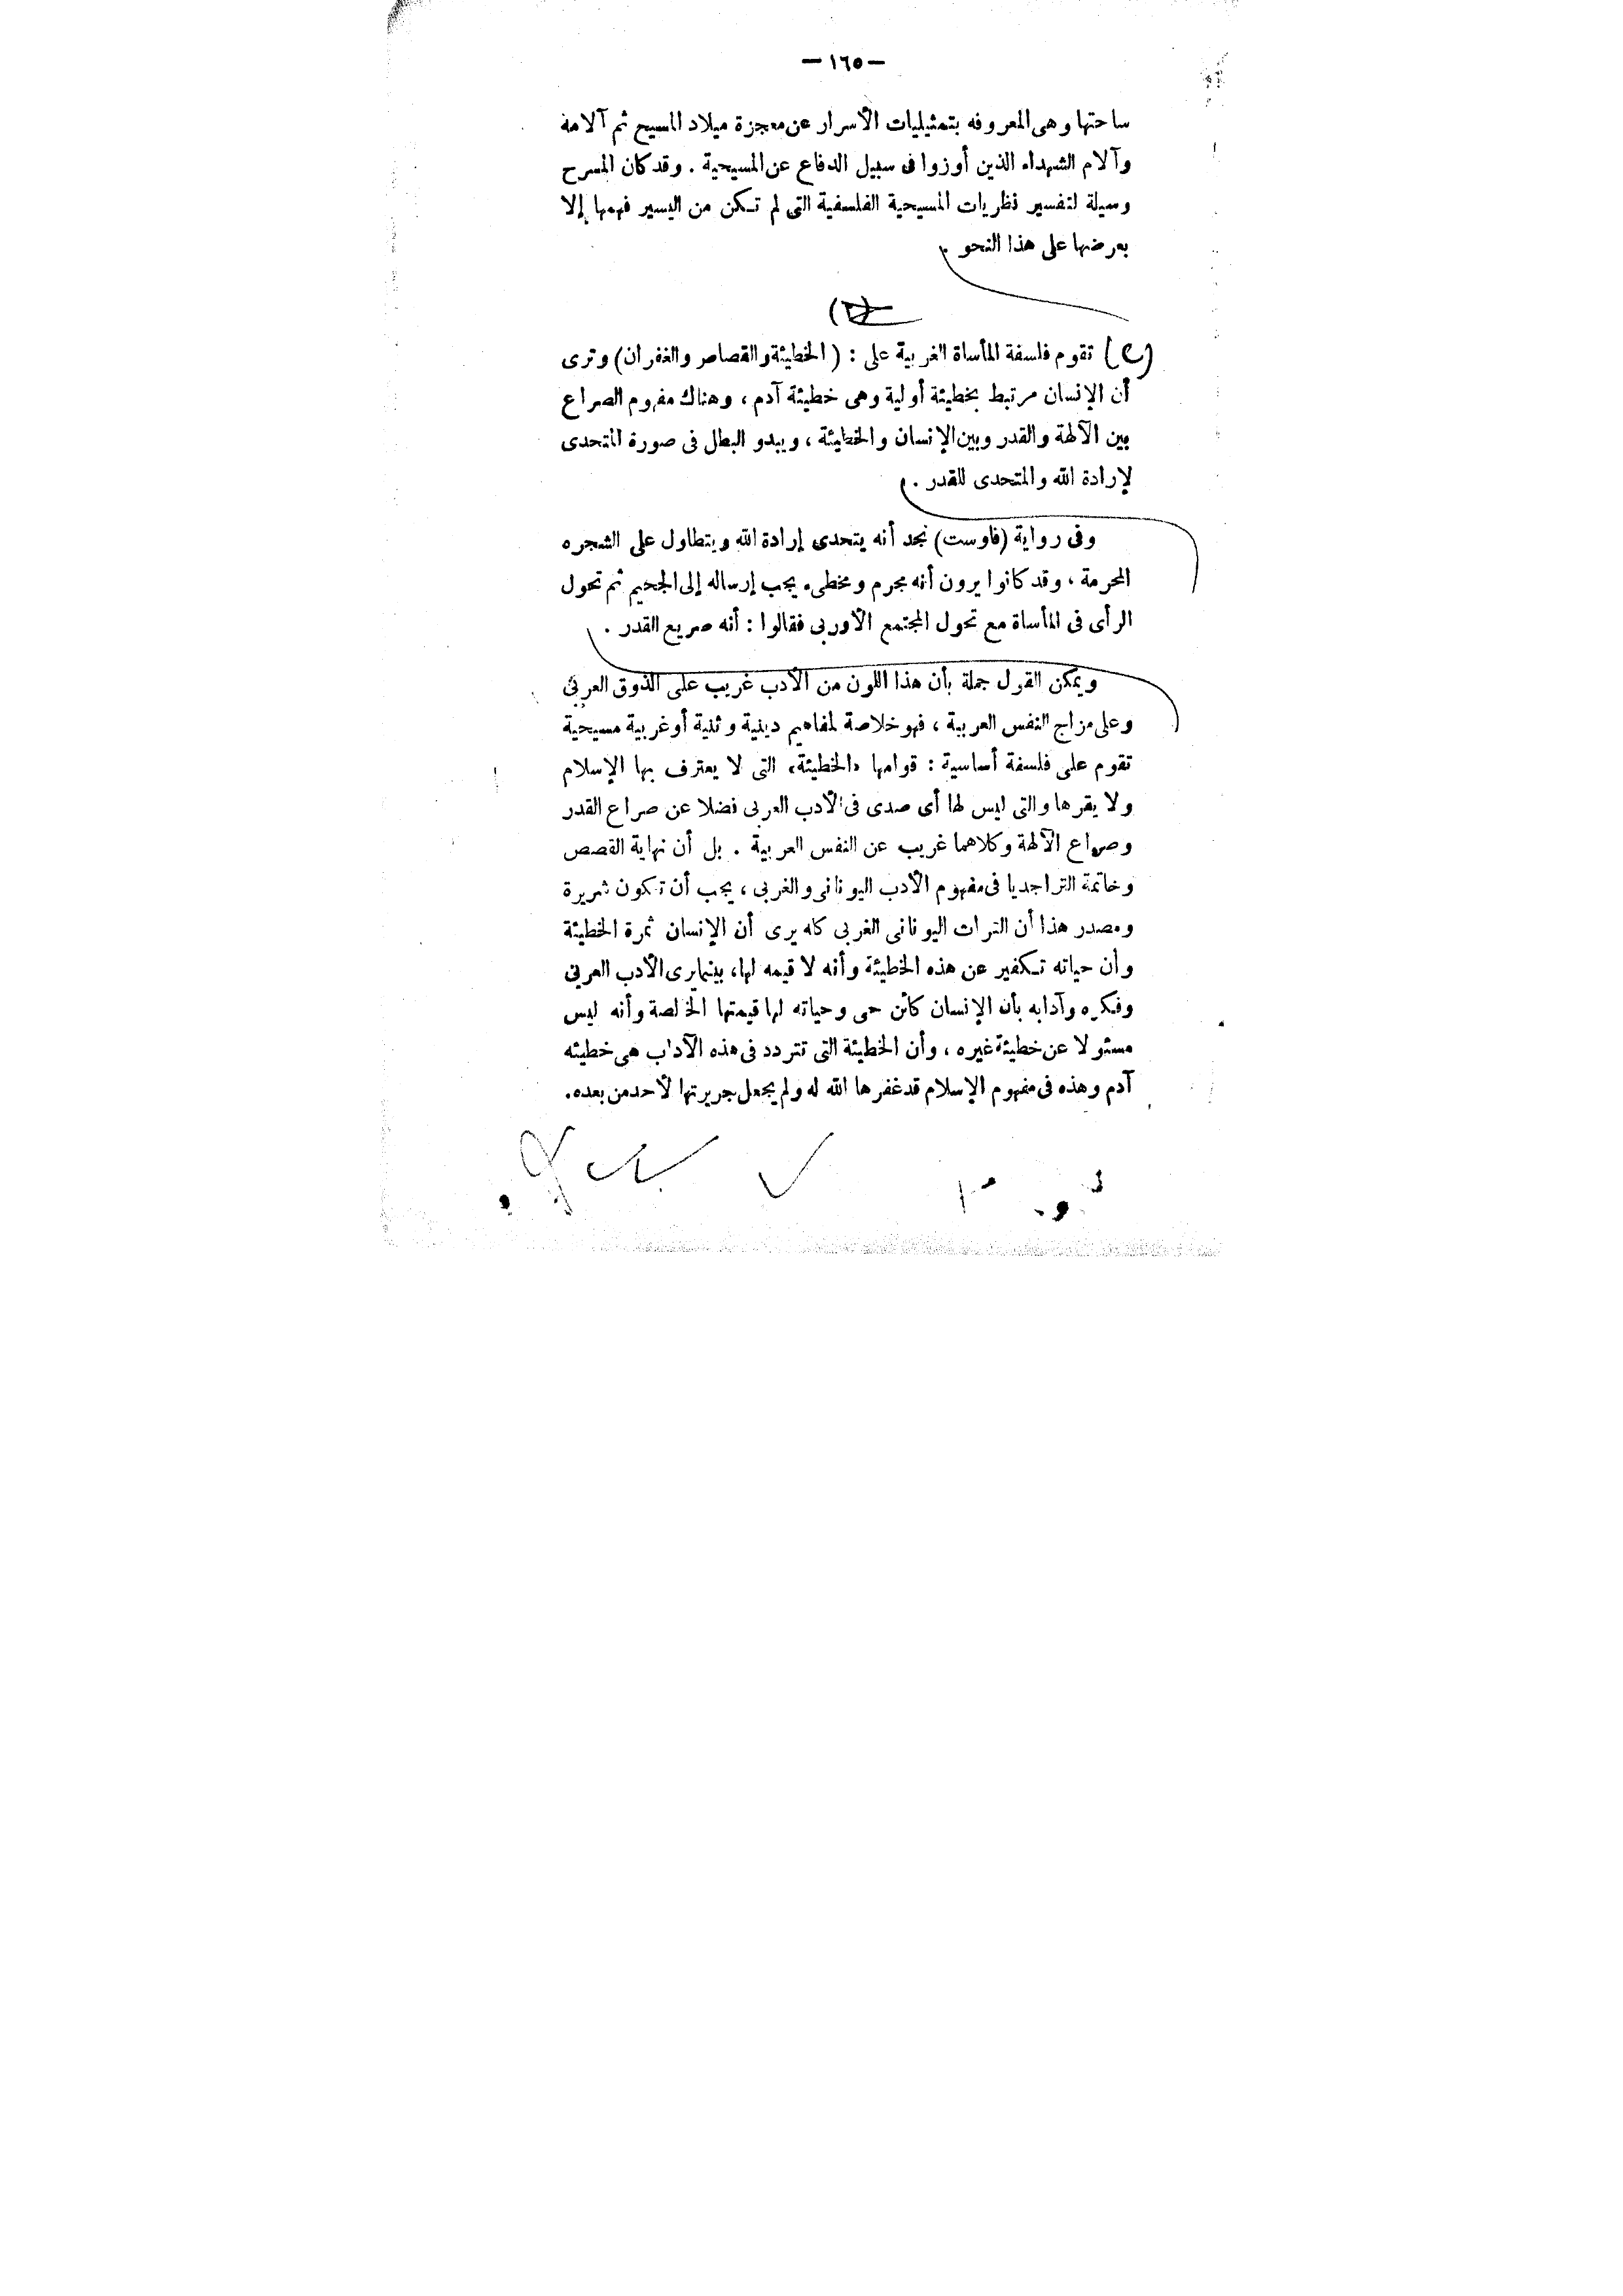 — ١٦٥ —
ساحتها وهى المعروفه بتمثيليات الأسرار عن معجزة ميلاد المسيح ثم آلامه
وآلام الشهداء الذين أوزوا فى سبيل الدفاع عن المسيحية . وقد كان المسرح
وسيلة لتفسير نظريات المسيحية الفلسفية التى لم تكن من اليسير فهمها إلا
بعرضها على هذا النحو .
(٢)
تقوم فلسفة المأساة الغربية على : ( الخطيئة والقصاص والغفران) وترى
أن الإنسان مرتبط بخطيئة أولية وهى خطيئة آدم ، وهناك مفهوم الصراع
بين الآلهة والقدر وبين الإنسان والخطيئة ، ويبدو البطل فى صورة المتحدى
لإرادة الله والمتحدى للقدر .
وفى رواية (فاوست) نجد أنه يتحدى إرادة الله ويتطاول على الشجره
المحرمة ، وقد كانوا يرون أنه مجرم ومخطىء يجب إرساله إلى الجحيم ثم تحول
الرأى فى المأساة مع تحول المجتمع الأوربى فقالوا : أنه صريع القدر .
ويمكن القول جملة بأن هذا اللون من الأدب غريب على الذوق العربى
وعلى مزاج النفس العربية ، فهو خلاصة لمفاهيم دينية وثنية أو غربية مسيحية
تقوم على فلسفة أساسية : قوامها «الخطيئة» التى لا يعترف بها الإسلام
ولا يقرها والتى ليس لها أى صدى فى الأدب العربى فضلا عن صراع القدر
وصراع الآلهة وكلاهما غريب عن النفس العربية . بل أن نهاية القصص
وخاتمة التراجديا فى مفهوم الأدب اليونانى والغربى ، يجب أن تكون شريرة
ومصدر هذا أن التراث اليونانى الغربى كله يرى أن الإنسان ثمرة الخطيئة
وأن حياته تكفير عن هذه الخطيئة وأنه لا قيمه لها، بينما يرى الأدب العربى
وفكره وآدابه بأن الإنسان كائن حى وحياته لها قيمتها الخالصة وأنه ليس
مسئولا عن خطيئة غيره ، وأن الخطيئة التى تتردد فى هذه الآداب هى خطيئه
آدم وهذه فى مفهوم الإسلام قد غفرها الله له ولم يجعل جريرتها لأحد من بعده.